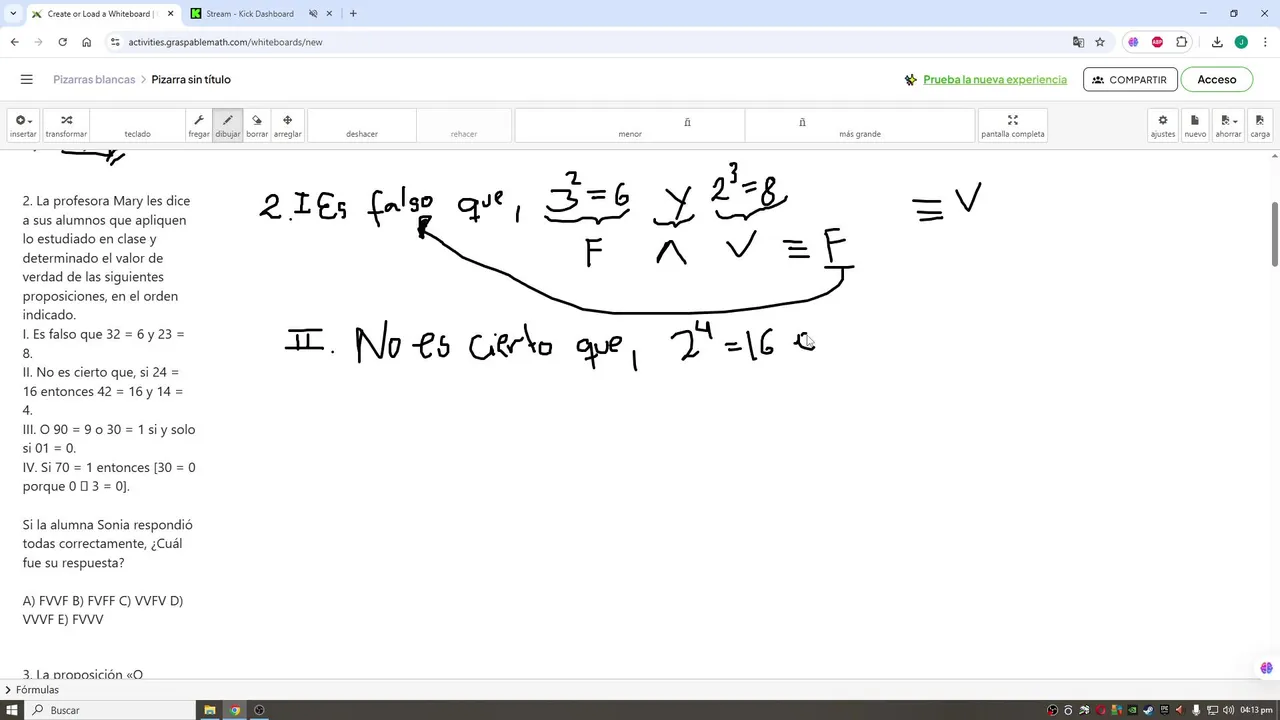 Create or Load a Whiteboard |
Stream - Kick Dashboard
activities.graspablemath.com/whiteboards/new
Pizarras blancas > Pizarra sin título
Prueba la nueva experiencia
COMPARTIR
Acceso
insertar transformar teclado fregar dibujar borrar arreglar deshacer rehacer menor ñ ñ más grande pantalla completa ajustes nuevo ahorrar carga
2. La profesora Mary les dice
a sus alumnos que apliquen
lo estudiado en clase y
determinado el valor de
verdad de las siguientes
proposiciones, en el orden
indicado.
I. Es falso que 32 = 6 y 23 =
8.
II. No es cierto que, si 24 =
16 entonces 42 = 16 y 14 =
4.
III. O 90 = 9 o 30 = 1 si y solo
si 01 = 0.
IV. Si 70 = 1 entonces [30 = 0
porque 0 ▯ 3 = 0].
Si la alumna Sonia respondió
todas correctamente, ¿Cuál
fue su respuesta?
A) FVVF B) FVFF C) VVFV D)
VVVF E) FVVV
3. La proposición «O
2. I Es falso que, 3² = 6 y 2³ = 8 ≡ V
F ∧ V ≡ F
II. No es cierto que, 2⁴ = 16
Fórmulas
Buscar
04:13 pm